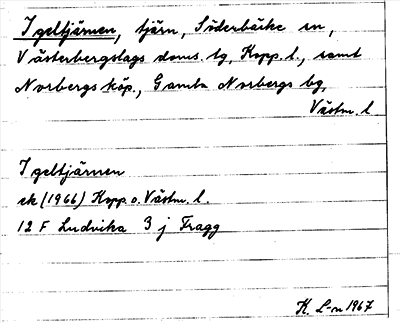 Igeltjärnen, tjärn, Söderbärke sn,
Västerbergslags doms. tg, Kopp. l., samt
Norbergs köp., Gamla Norbergs bg,
Västm. l.
Igeltjärnen
ek (1966) Kopp. o. Västm. l.
12 F Ludvika 3 j Fragg
K. L-n 1967